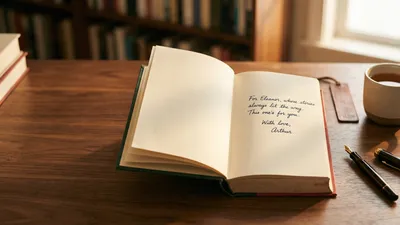 For Eleanor, whose stories
always lit the way.
This one's for you.
With love,
Arthur